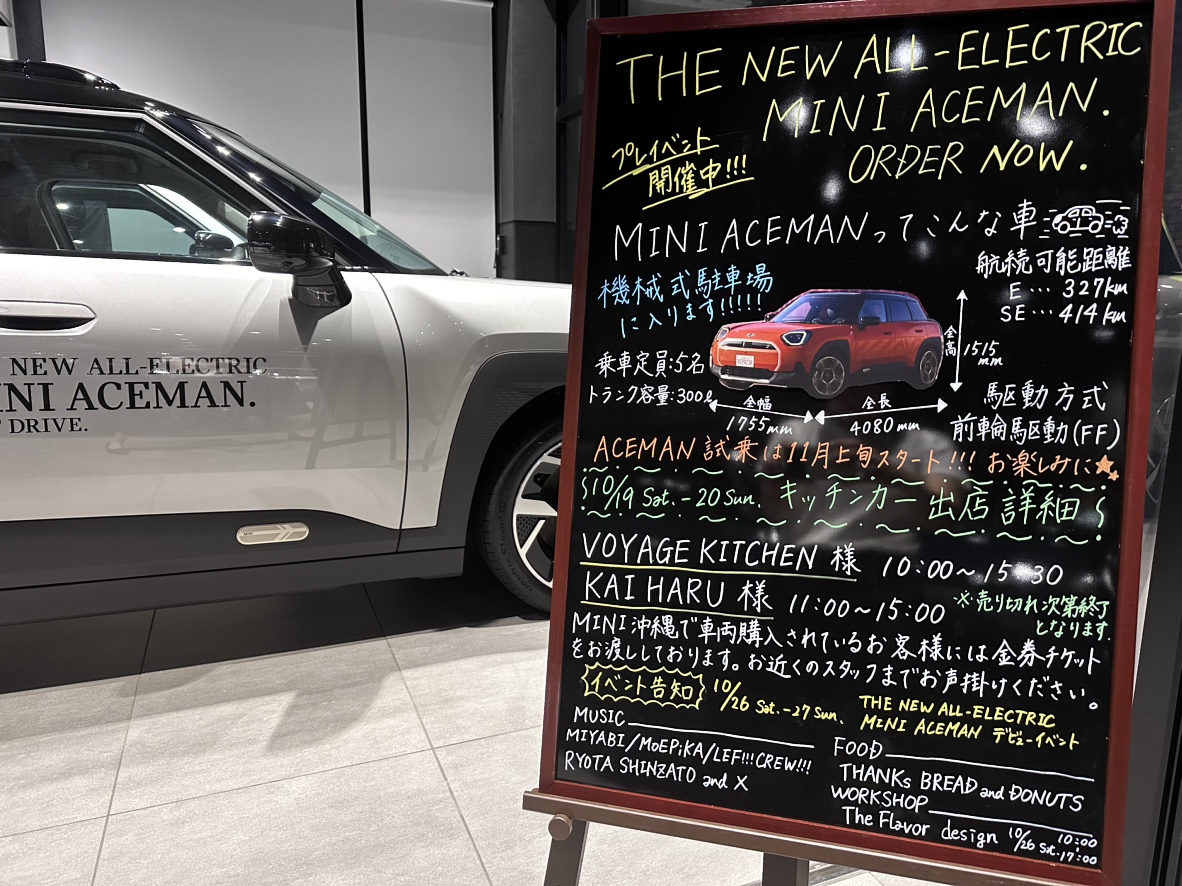 NEW ALL-ELECTRIC
INI ACEMAN.
DRIVE.
MINI
THE NEW ALL-ELECTRIC
MINI ACEMAN.
ORDER NOW.
プレイベント
開催中!!!
MINI ACEMANってこんな車
機械式駐車場
に入ります!!!!!
航続可能距離
E… 327km
SE… 414km
全高 1515mm
乗車定員:5名
トランク容量:300ℓ
全幅
1755mm
全長
4080mm
駆動方式
前輪駆動(FF)
ACEMAN 試乗は11月上旬スタート!!! お楽しみに★
10/19 Sat.-20 Sun. キッチンカー出店詳細
VOYAGE KITCHEN 様 10:00〜15:30
KAI HARU 様 11:00〜15:00
※売り切れ次第終了
となります。
MINI沖縄で車両購入されているお客様には金券チケット
をお渡ししております。お近くのスタッフまでお声掛けください。
イベント告知 10/26 Sat.-27 Sun.
THE NEW ALL-ELECTRIC
MINI ACEMAN デビューイベント
MUSIC
MIYABI/MoEPiKA/LEF!!!CREW!!!
RYOTA SHINZATO and X
FOOD
THANKs BREAD and DONUTS
WORKSHOP
The Flavor design 10/26 Sat. 10:00-17:00